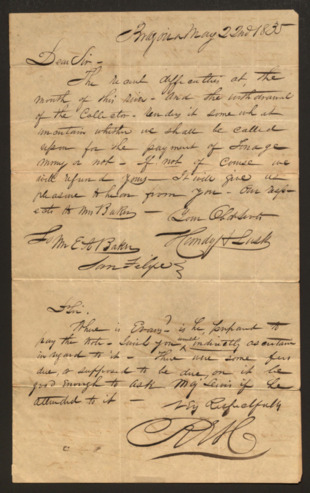 Brazoria May 22nd 1835
Dear Sir -
The recent difficulties at the
mouth of this River - and the withdrawal
of the Collector - renders it some what
uncertain whether we shall be called
upon for the payment of Tonage
money or not - If not of Course we
will refund yours - It will give us
pleasure to hear from you - Our resp-
ects to Mr Baker -
Your Obt Servts
To Mr E. A. Baker Handy & Lusk
San Felipe
Sir.
Where is - is he prepared to
pay the note - Will you indirectly ascertain
in regard to it - There are some fees
due or supposed to be due, on it be
good enough to ask Majr Lewis if he
attended to it -
Very Respectfully